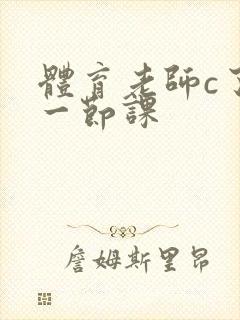 體育老師c了
一節課
詹姆斯里昂